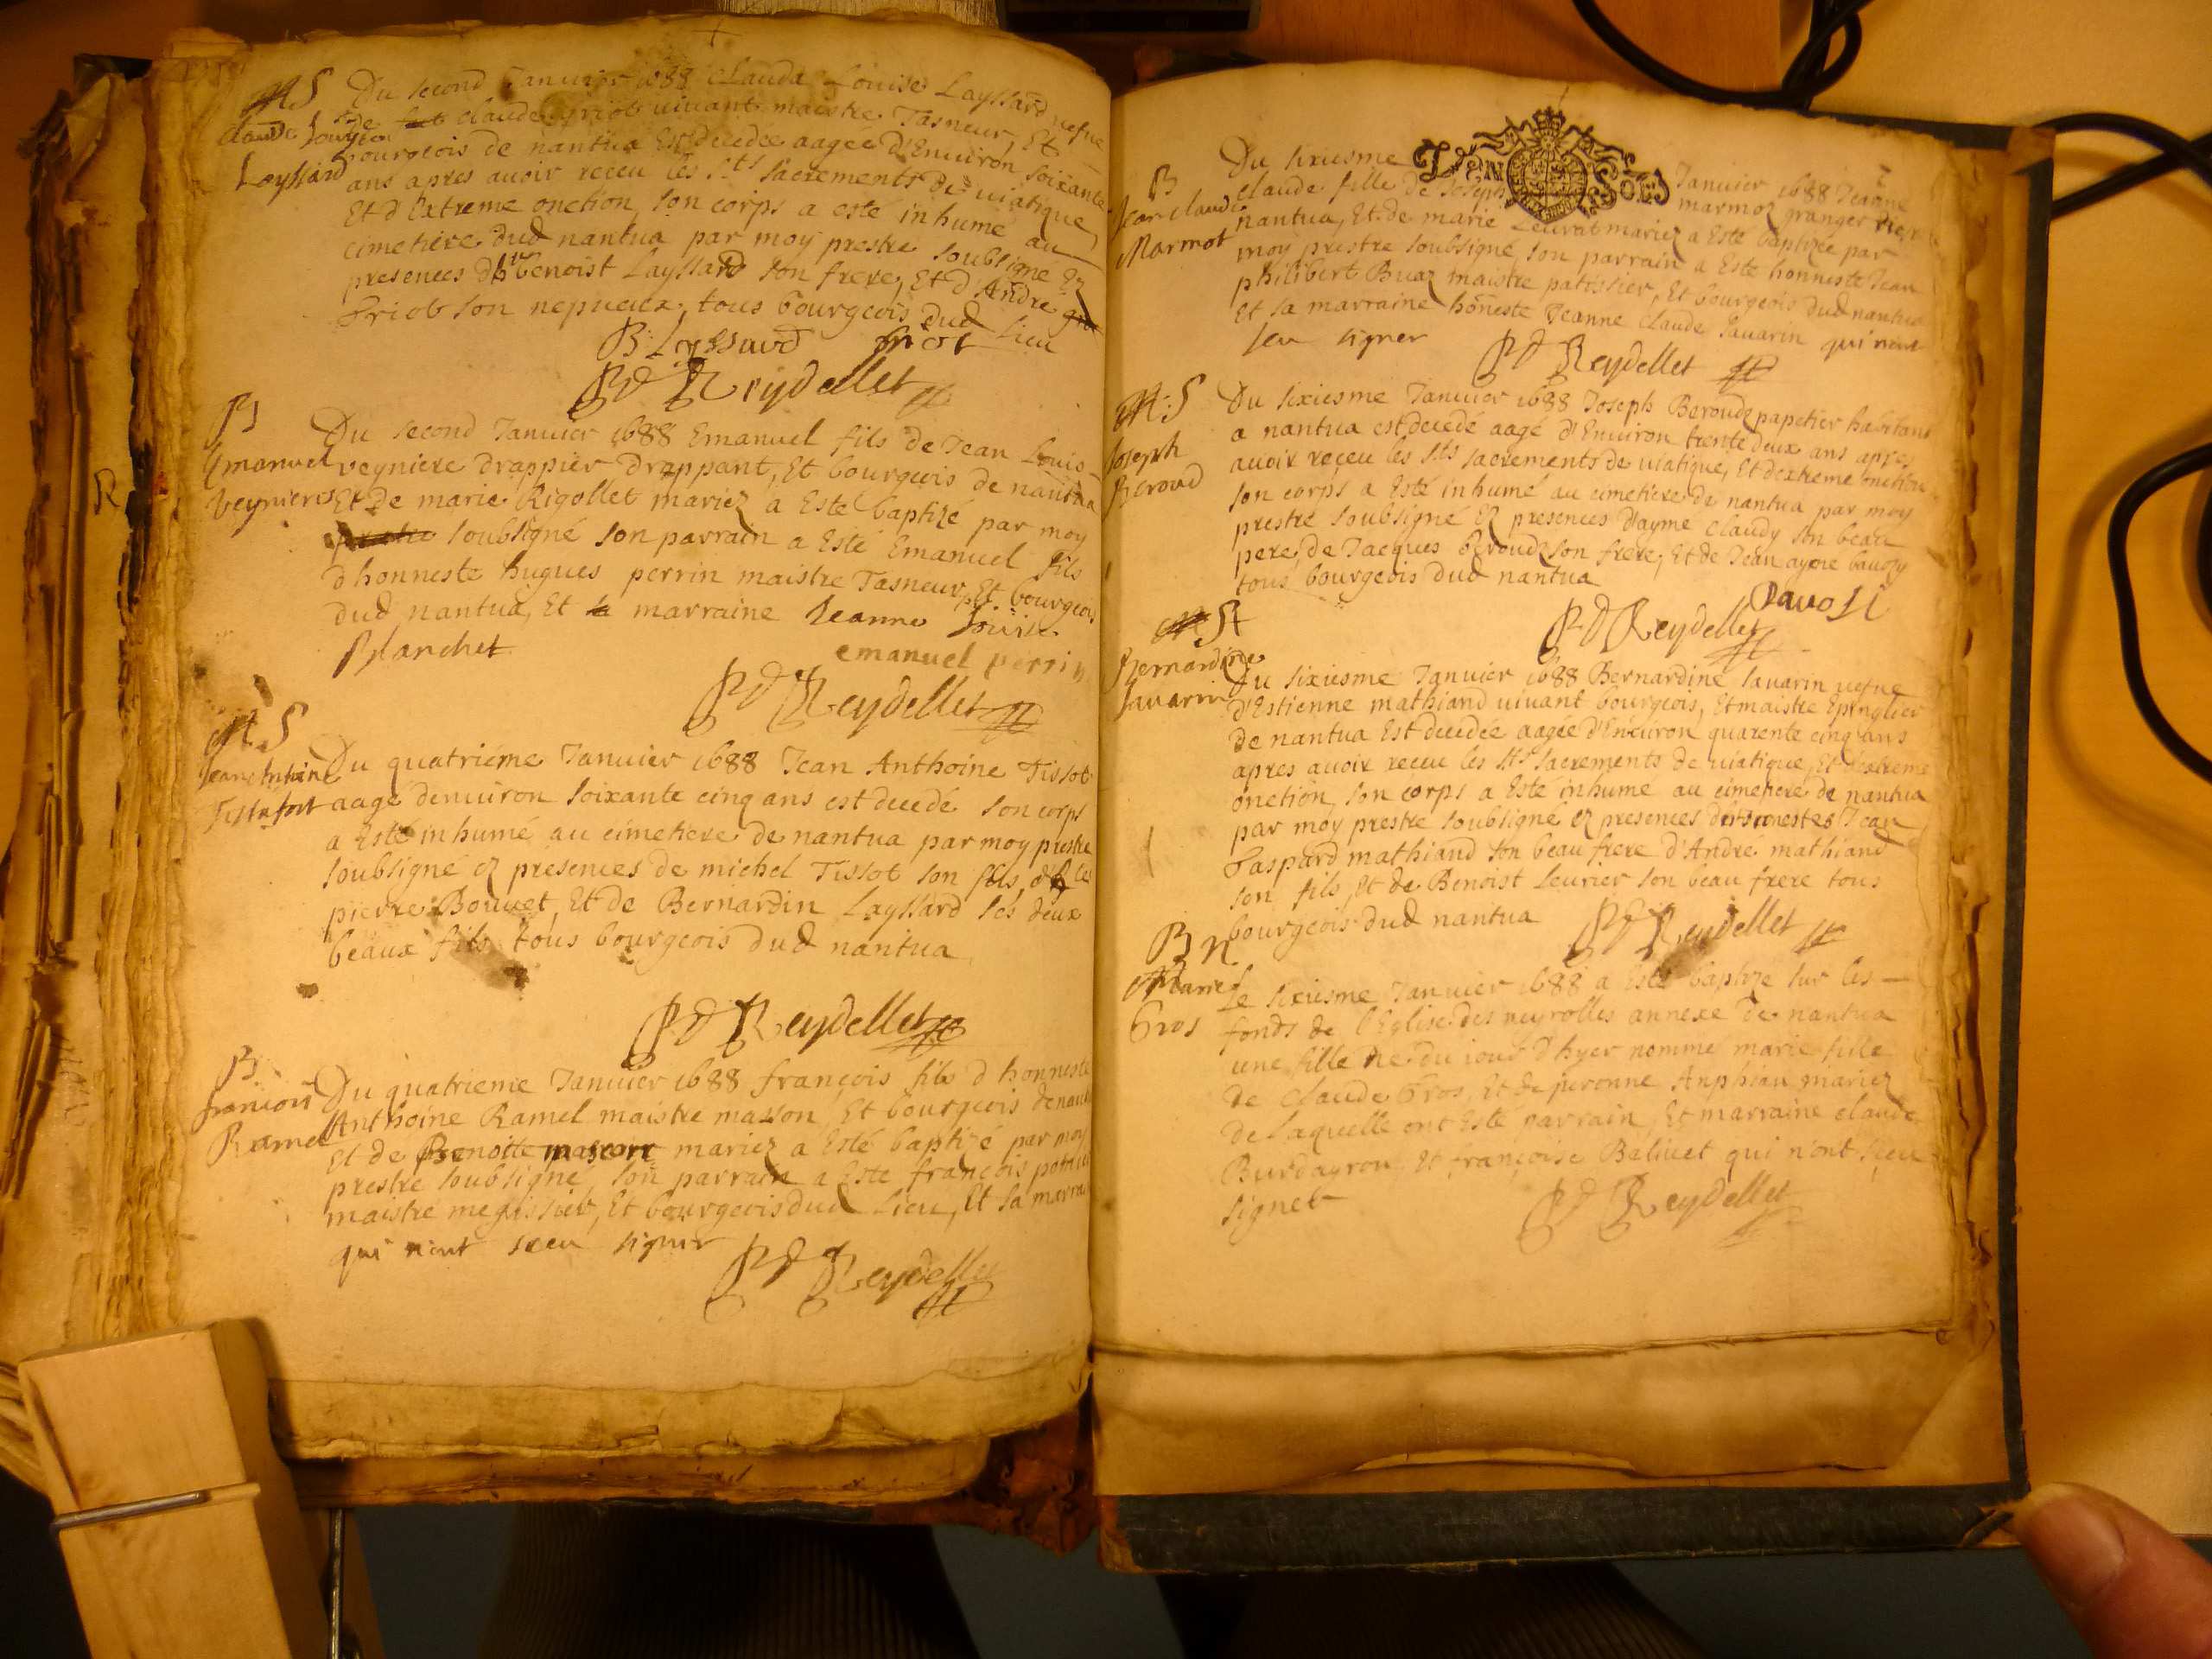 MS
Claude Louyse
Layssard
Du second Januier 1688 Claude Louise Layssard vefue
de Claude Griot uiuant maistre Tasneur, Et
bourgeois de nantua Est decedee aageé d'Enuiron soixante
ans apres auoir receu les Sts sacrements de uiatique,
Et d'Extreme onction, son corps a esté inhumé au
cimetiere dud nantua par moy prestre soubsigné Ez
presences dhble benoist Layssard son frere, Et d'André
Griot son nepueux, tous bourgeois dud Lieu
B. Layssard griot
PD Reydellet
B
Emanuel
Veynieres
Du second Januier 1688 Emanuel fils de Jean Louis
veyniere drappier drappant, Et bourgeois de nantua
Et De marie Rigollet mariez a Esté baptizé par moy
soubsigné son parrain a Esté Emanuel fils
d honneste hugues perrin maistre Tasneur, Et bourgeois
dud nantua, Et sa marraine Jeanne Louise
Blanchet
emanuel perrin
PD Reydellet
M.S
Jean Anthoine
Tissot
Du quatrieme Januier 1688 Jean Anthoine Tissot
aagé denuiron soixante cinq ans est decedé son corps
a Esté inhumé au cimetiere de nantua par moy prestre
soubsigné ez presences de michel Tissot son fils,
pierre Bouuet, Et de Bernardin Layssard ses deux
beaux fils tous bourgeois dud nantua
PD Reydellet
B
françois
Ramel
Du quatrieme Januier 1688 françois fils d honneste
Anthoine Ramel maistre masson, Et bourgeois de
Et de Benoitte mariez a Esté baptizé par moy
prestre soubsigné, son parrain a Este françois
maistre megissier, Et bourgeois dud Lieu, Et sa
qui n'ont sceu signer
PD Reydellet
B
Jean claude
Marmot
GEN SOLS
Du sixiesme Januier 1688 Jeanne
claude fille de Joseph marmoz granger
nantua, Et de marie Leurat mariez a Esté baptizée par
moy prestre soubsigné, son parrain a Este honneste Jean
philibert Buaz maistre patissier, Et bourgeois dud nantua
Et sa marraine honneste Jeanne Claude Sauarin qui n'ont
sceu signer
PD Reydellet
M:S
Joseph
Beroud
Du sixiesme Januier 1688 Joseph Beroudz papetier habitant
a nantua est decedé aagé d'Enuiron trente deux ans apres
auoir receu les Sts sacrements de uiatique, Et dextreme onction
son corps a Esté inhumé au cimetiere de nantua par moy
prestre soubsigné Ez presences d'aymé Claudy son beau
pere, de Jacques beroudz son frere, Et de Jean ayme bauozy
tous bourgeois dud nantua
PD Reydellet
St
Bernardine
Sauarin
Du sixiesme Januier 1688 Bernardine Sauarin uefue
d'Estienne mathiand uiuant bourgeois, Et maistre Epinglier
de nantua Est decedée aagée d'Enuiron quarente cinq ans
apres auoir receu les Sts sacrements de uiatique, Et dextreme
onction, son corps a Esté inhumé au cimetiere de nantua
par moy prestre soubsigné ez presences d'honnestes Jean
Gaspard mathiand son beau frere d'André mathiand
son fils, Et de Benoist Leurier son beau frere tous
bourgeois dud nantua
PD Reydellet
B N
Marie
Gros
Le sixiesme Januier 1688 a Esté baptize sur les
fonds de l'Eglise des neyrolles annexe de nantua
une fille ne du iour d'hyer nommé marie fille
de Claude Gros, Et de peronne Anphian mariez
de Laquelle ont Esté parrain, Et marraine claude
Burdayron Et françoise Baliuet qui n'ont sceu
signer
PD Reydellet